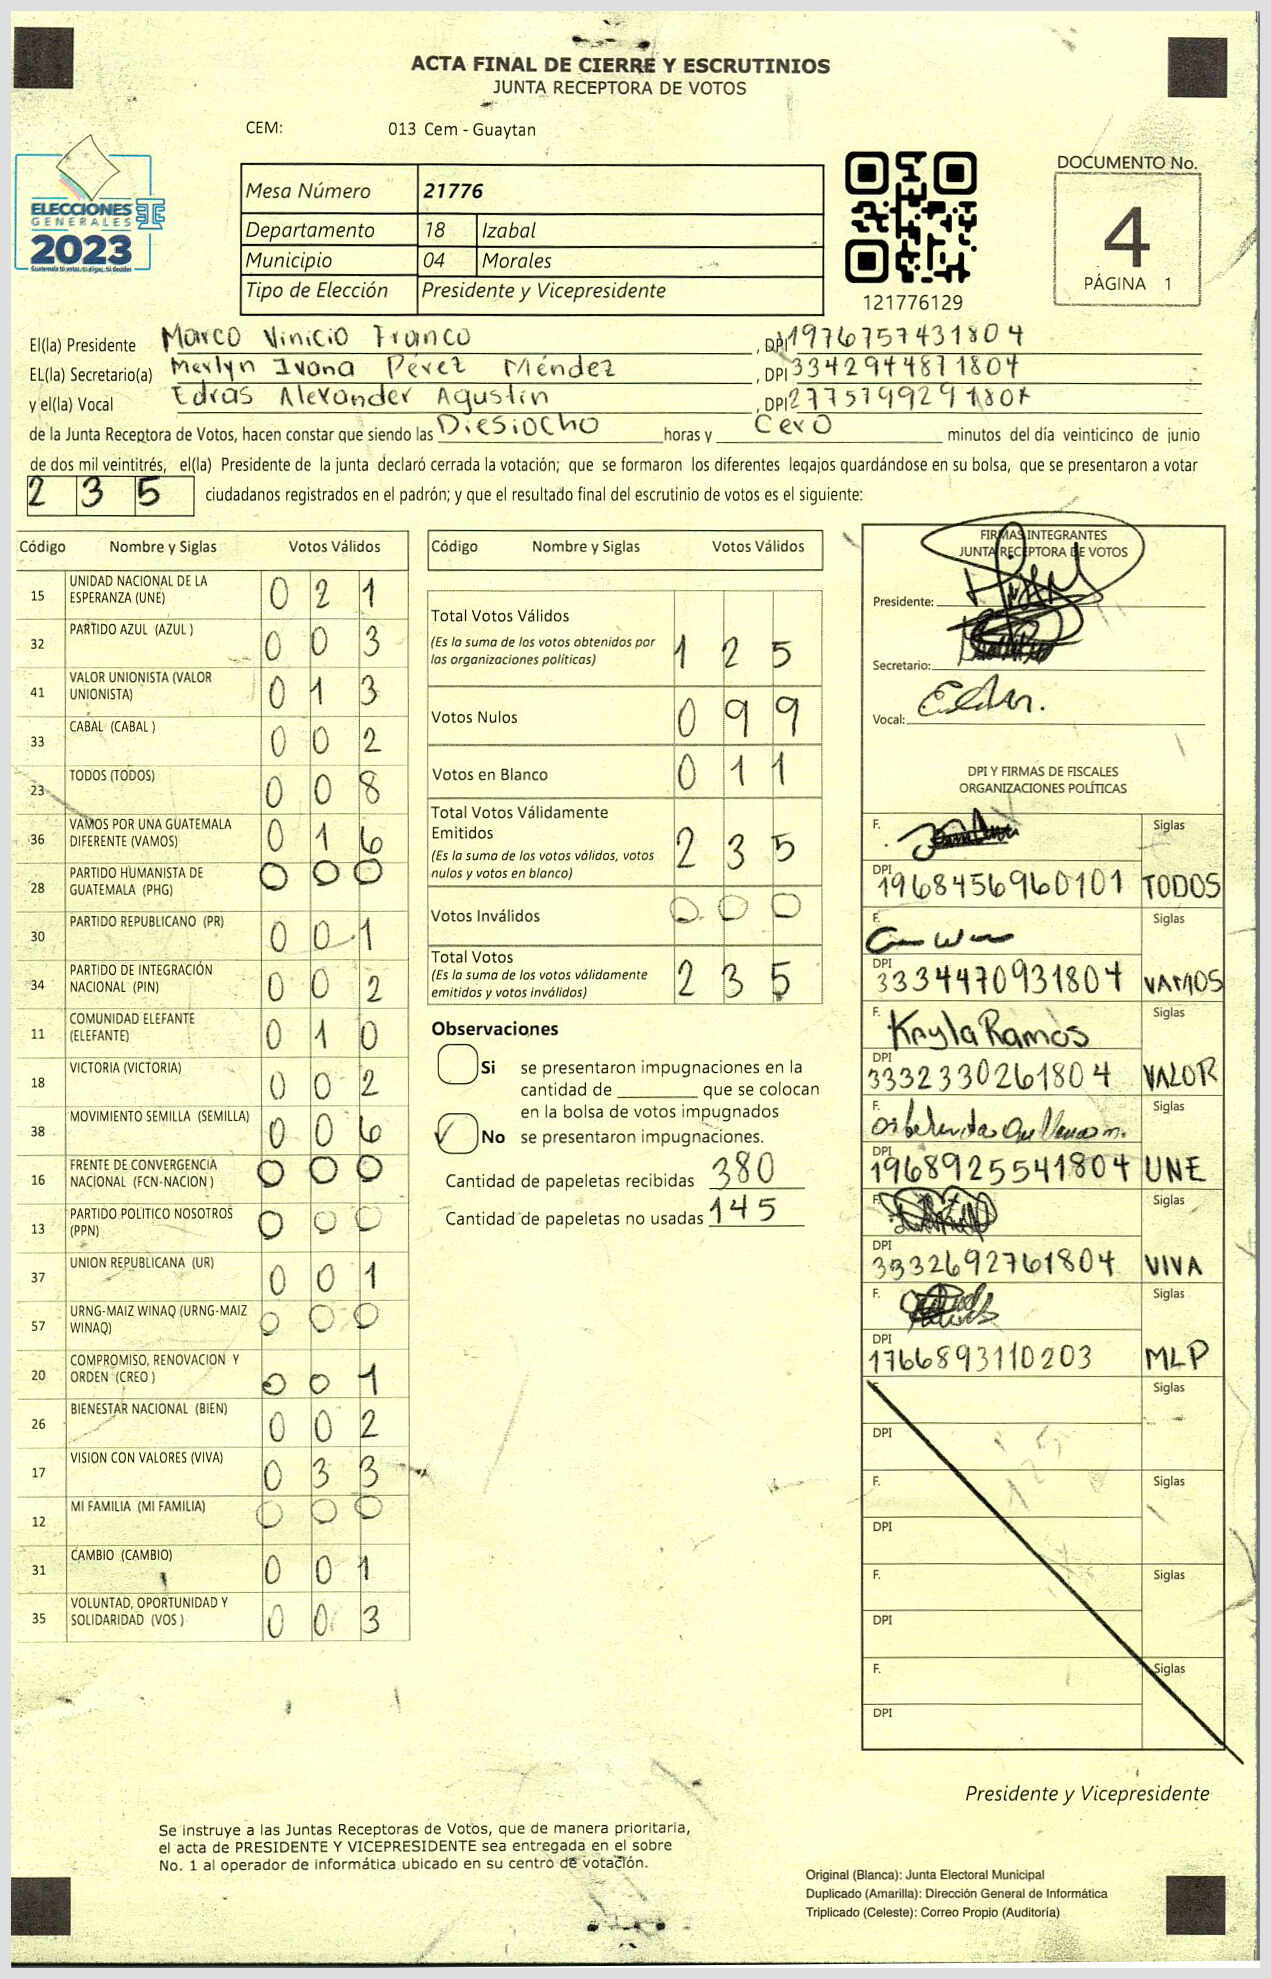 ACTA FINAL DE CIERRE Y ESCRUTINIOS
JUNTA RECEPTORA DE VOTOS
CEM: 013 Cem - Guaytan
ELECCIONES
GENERALES
2023
Mesa Número 21776
Departamento 18 Izabal
Municipio 04 Morales
Tipo de Elección Presidente y Vicepresidente
121776129
DOCUMENTO No.
4
PÁGINA 1
El(la) Presidente Marco Vinicio Franco , DPI 1976757431804
EL(la) Secretario(a) Merlyn Ivana Pérez Méndez , DPI 3342944871804
y el(la) Vocal Edras Alexander Agustin , DPI 277579929 1804
de la Junta Receptora de Votos, hacen constar que siendo las Diesiocho horas y Cero minutos del día veinticinco de junio
de dos mil veintitrés, el(la) Presidente de la junta declaró cerrada la votación; que se formaron los diferentes legajos guardándose en su bolsa, que se presentaron a votar
2 3 5 ciudadanos registrados en el padrón; y que el resultado final del escrutinio de votos es el siguiente:
Código Nombre y Siglas Votos Válidos
15 UNIDAD NACIONAL DE LA ESPERANZA (UNE) 0 2 1
32 PARTIDO AZUL (AZUL ) 0 0 3
41 VALOR UNIONISTA (VALOR UNIONISTA) 0 1 3
33 CABAL (CABAL ) 0 0 2
23 TODOS (TODOS) 0 0 8
36 VAMOS POR UNA GUATEMALA DIFERENTE (VAMOS) 0 1 6
28 PARTIDO HUMANISTA DE GUATEMALA (PHG) 0 0 0
30 PARTIDO REPUBLICANO (PR) 0 0 1
34 PARTIDO DE INTEGRACIÓN NACIONAL (PIN) 0 0 2
11 COMUNIDAD ELEFANTE (ELEFANTE) 0 1 0
18 VICTORIA (VICTORIA) 0 0 2
38 MOVIMIENTO SEMILLA (SEMILLA) 0 0 6
16 FRENTE DE CONVERGENCIA NACIONAL (FCN-NACION ) 0 0 0
13 PARTIDO POLITICO NOSOTROS (PPN) 0 0 0
37 UNION REPUBLICANA (UR) 0 0 1
57 URNG-MAIZ WINAQ (URNG-MAIZ WINAQ) 0 0 0
20 COMPROMISO, RENOVACION Y ORDEN (CREO ) 0 0 1
26 BIENESTAR NACIONAL (BIEN) 0 0 2
17 VISION CON VALORES (VIVA) 0 3 3
12 MI FAMILIA (MI FAMILIA) 0 0 0
31 CAMBIO (CAMBIO) 0 0 1
35 VOLUNTAD, OPORTUNIDAD Y SOLIDARIDAD (VOS ) 0 0 3
Código Nombre y Siglas Votos Válidos
Total Votos Válidos
(Es la suma de los votos obtenidos por las organizaciones políticas) 1 2 5
Votos Nulos 0 9 9
Votos en Blanco 0 1 1
Total Votos Válidamente Emitidos
(Es la suma de los votos válidos, votos nulos y votos en blanco) 2 3 5
Votos Inválidos 0 0 0
Total Votos
(Es la suma de los votos válidamente emitidos y votos inválidos) 2 3 5
Observaciones
Si se presentaron impugnaciones en la
cantidad de ________ que se colocan
en la bolsa de votos impugnados
✓ No se presentaron impugnaciones.
Cantidad de papeletas recibidas 380
Cantidad de papeletas no usadas 145
FIRMAS INTEGRANTES
JUNTA RECEPTORA DE VOTOS
Presidente:
Secretario:
Vocal:
DPI Y FIRMAS DE FISCALES
ORGANIZACIONES POLÍTICAS
F. Siglas
DPI 1968456960101 TODOS
F. Siglas
DPI 3334470931804 VAMOS
F. Kayla Ramos Siglas
DPI 3332330261804 VALOR
F. Siglas
DPI 1968925541804 UNE
F. Siglas
DPI 3332692761804 VIVA
F. Siglas
DPI 1766893110203 MLP
F. Siglas
DPI
F. Siglas
DPI
F. Siglas
DPI
F. Siglas
DPI
Presidente y Vicepresidente
Se instruye a las Juntas Receptoras de Votos, que de manera prioritaria,
el acta de PRESIDENTE Y VICEPRESIDENTE sea entregada en el sobre
No. 1 al operador de informática ubicado en su centro de votación.
Original (Blanca): Junta Electoral Municipal
Duplicado (Amarilla): Dirección General de Informática
Triplicado (Celeste): Correo Propio (Auditoría)